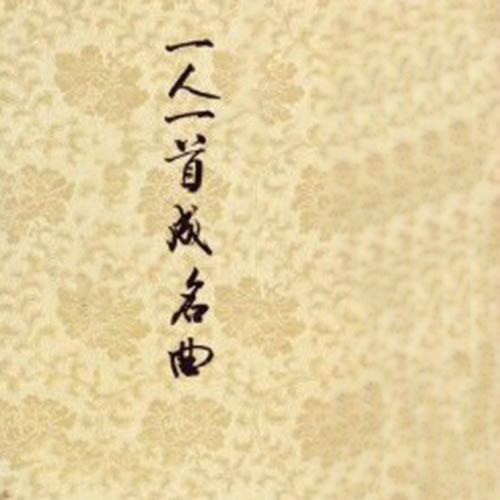 一人一首成名曲